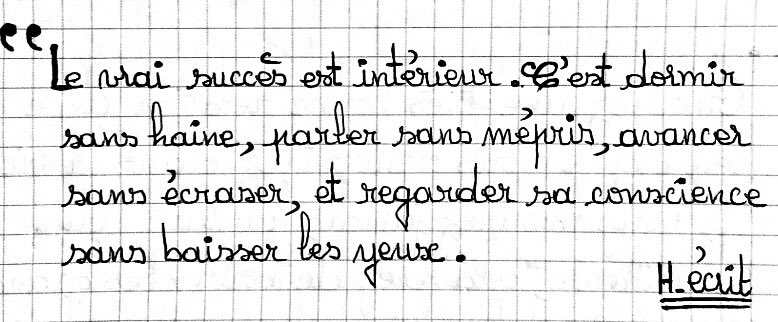 “Le vrai succès est intérieur. C'est dormir
sans haine, parler sans mépris, avancer
sans écraser, et regarder sa conscience
sans baisser les yeux.
H-écrit